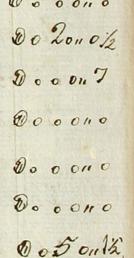 Do o on o
Do 2 on 0½
Do o o on 7
Do o o n o
Do o o n o
Do o o n o
Do 5 on 1½